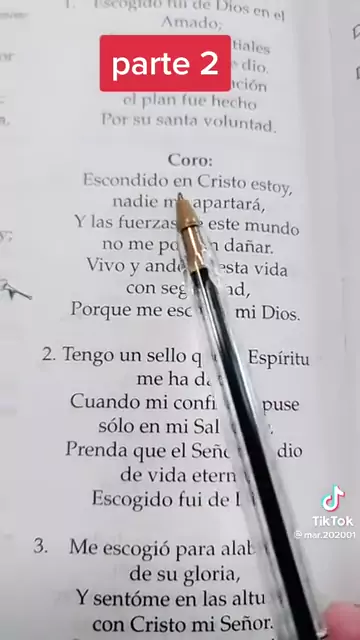 1. Escogido fui de Dios en el
Amado;
tiales
dio.
ción
el plan fue hecho
Por su santa voluntad.
parte 2
Coro:
Escondido en Cristo estoy,
nadie m apartará,
Y las fuerzas este mundo
no me po n dañar.
Vivo y and esta vida
con seg ad,
Porque me esc mi Dios.
2. Tengo un sello q Espíritu
me ha d
Cuando mi confi puse
sólo en mi Sal
Prenda que el Señ dio
de vida etern
Escogido fui de
3. Me escogió para alab
de su gloria,
Y sentóme en las altu
con Cristo mi Señor.
TikTok
@mar.202001